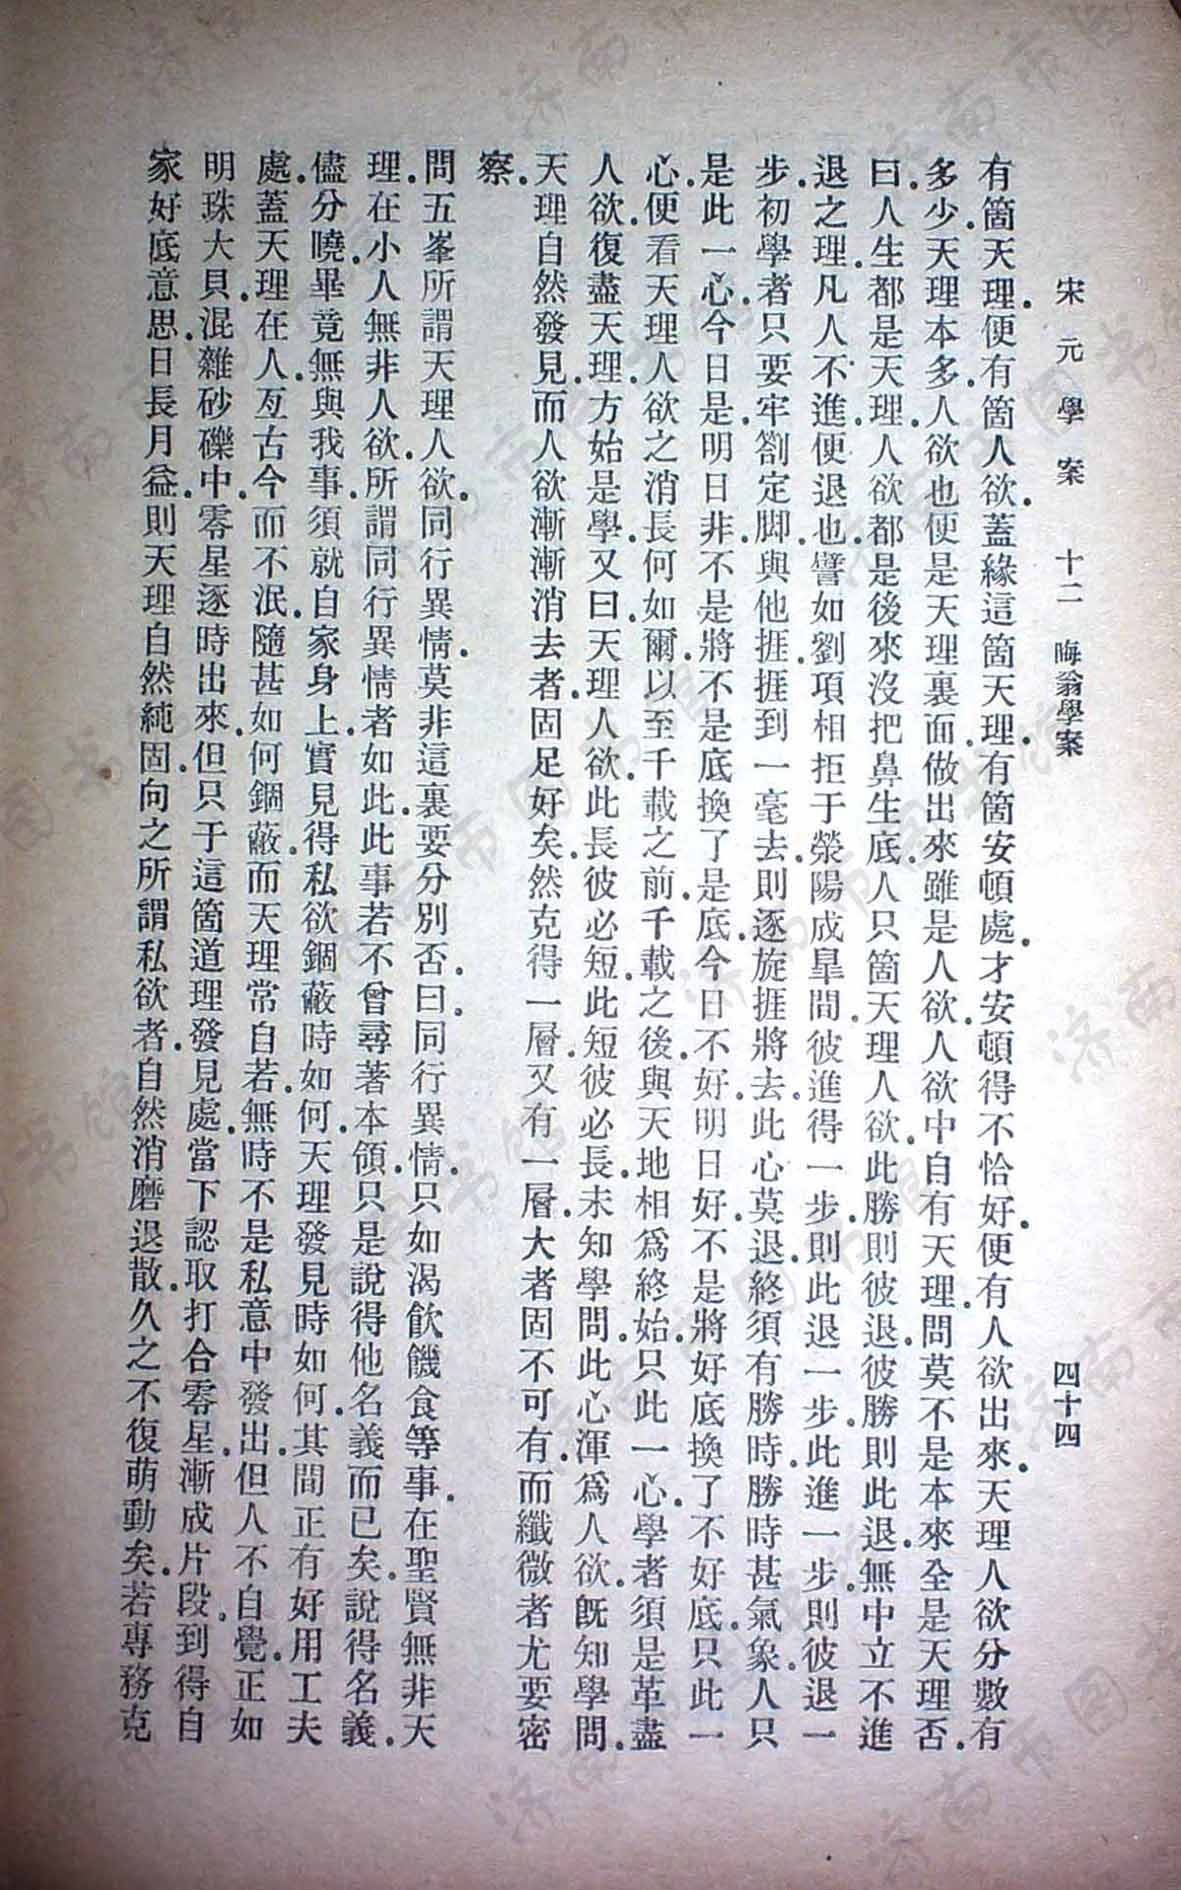 宋元學案 十二 晦翁學案 四十四
有箇天理.便有箇人欲.蓋緣這箇天理.有箇安頓處.才安頓得不恰好.便有人欲出來.天理人欲分數有
多少.天理本多.人欲也便是天理裏面做出來.雖是人欲.人欲中自有天理.問莫不是本來全是天理否.
曰.人生都是天理.人欲都是後來沒把鼻生底.人只箇天理人欲.此勝則彼退.彼勝則此退.無中立不進
退之理.凡人不進便退也.譬如劉項相拒于滎陽成臯間.彼進得一步.則此退一步.此進一步.則彼退一
步.初學者只要牢劄定脚.與他捱.捱到一毫去.則逐旋捱將去.此心莫退.終須有勝時.勝時甚氣象.人只
是此一心.今日是.明日非.不是將不是底換了是底.今日不好.明日好.不是將好底換了不好底.只此一
心.便看天理人欲之消長何如爾.以至千載之前.千載之後.與天地相爲終始.只此一心.學者須是革盡
人欲.復盡天理.方始是學.又曰.天理人欲.此長彼必短.此短彼必長.未知學問.此心渾爲人欲.既知學問.
天理自然發見.而人欲漸漸消去者.固足好矣.然克得一層.又有一層.大者固不可有.而纖微者尤要密
察.
問五峯所謂天理人欲.同行異情.莫非這裏要分別否.曰.同行異情.只如渴飲饑食等事.在聖賢無非天
理.在小人無非人欲.所謂同行異情者如此.此事若不曾尋著本領.只是說得他名義而已矣.說得名義.
儘分曉.畢竟無與我事.須就自家身上.實見得私欲錮蔽時如何.天理發見時如何.其間正有好用工夫
處.蓋天理在人.亙古今而不泯.隨甚如何錮蔽.而天理常自若.無時不是私意中發出.但人不自覺.正如
明珠大貝.混雜砂礫中.零星逐時出來.但只于這箇道理發見處.當下認取.打合零星.漸成片段.到得自
家好底意思.日長月益.則天理自然純固.向之所謂私欲者.自然消磨退散.久之不復萌動矣.若專務克